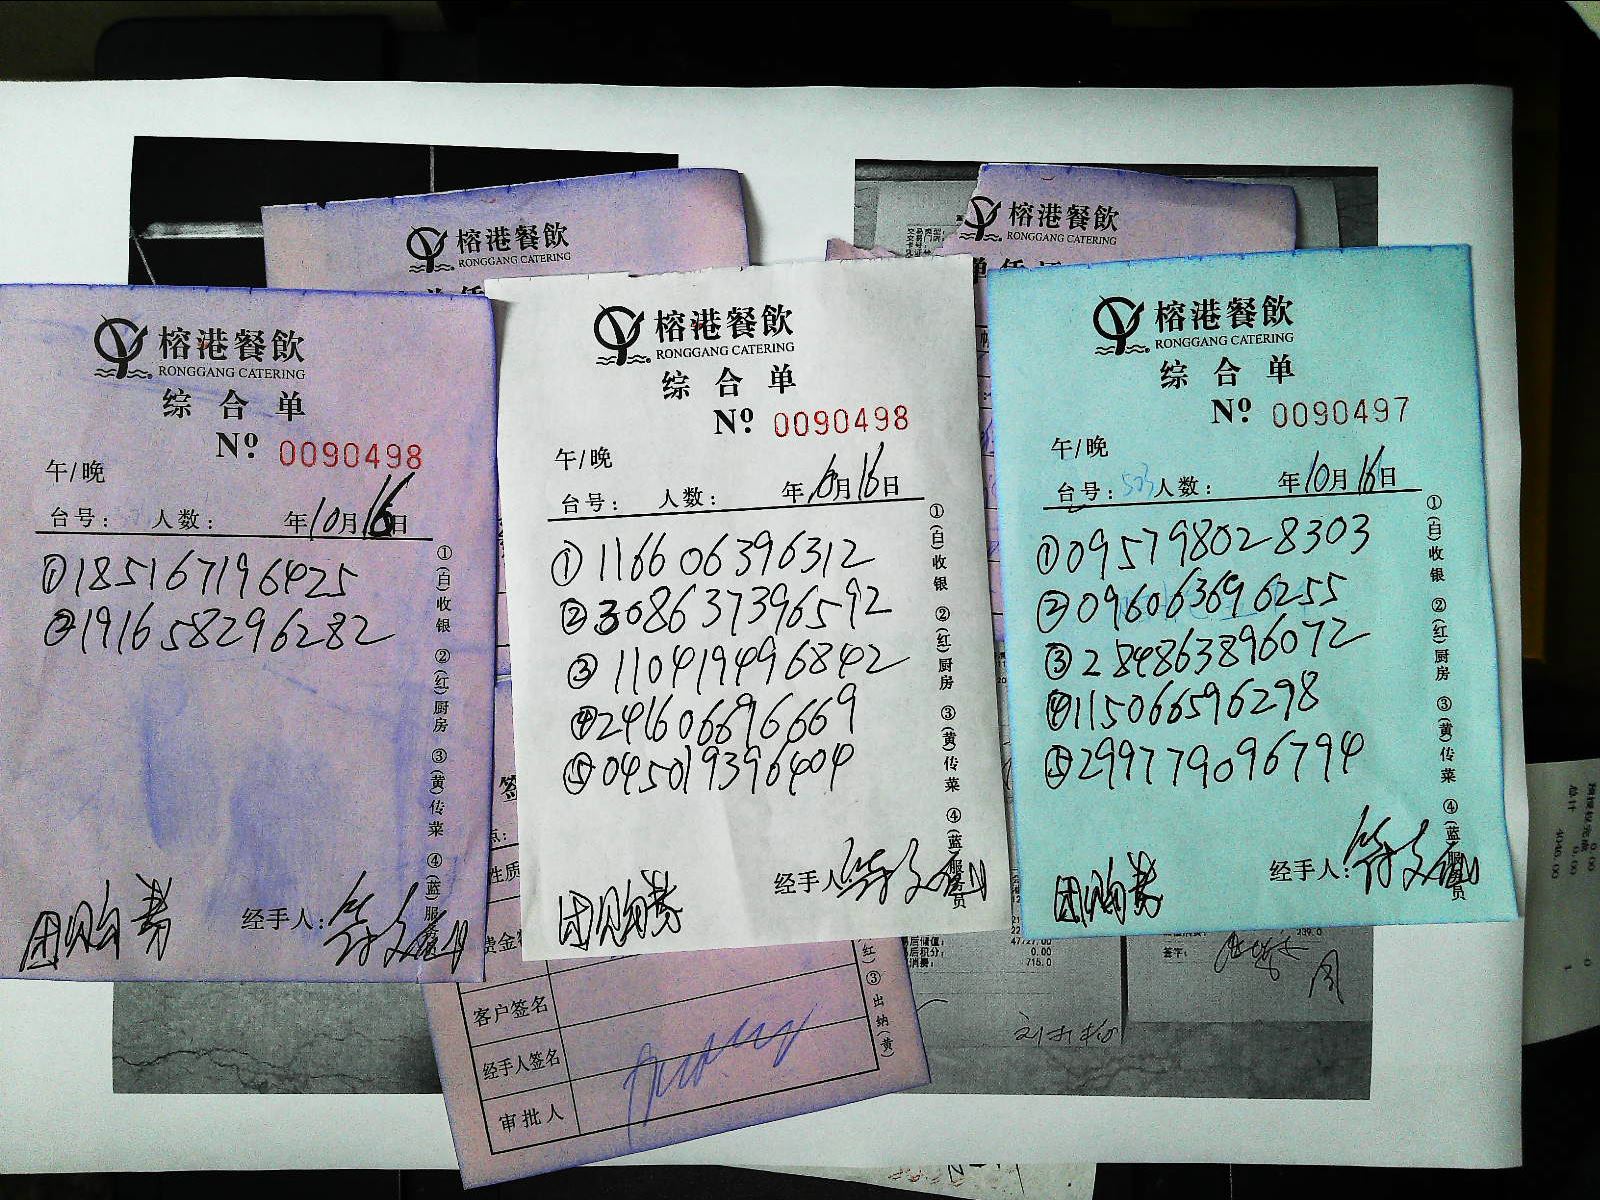 榕港餐飲
RONGGANG CATERING
榕港餐飲
RONGGANG CATERING
榕港餐飲
RONGGANG CATERING
综合单
Nº 0090498
午/晚
台号： 人数： 年10月16日
①185167196425
②191658296282
①(白)收银 ②(红)厨房 ③(黄)传菜 ④(蓝)服务员
团购券
经手人：
榕港餐飲
RONGGANG CATERING
综合单
Nº 0090498
午/晚
台号： 人数： 年10月16日
①116606396312
②308637396592
③110419496842
④241606696669
⑤045019396404
①(白)收银 ②(红)厨房 ③(黄)传菜 ④(蓝)服务员
团购券
经手人
榕港餐飲
RONGGANG CATERING
综合单
Nº 0090497
午/晚
台号： 人数： 年10月16日
①095798028303
②096063696255
③284863896072
④115066596298
⑤299779096794
①(白)收银 ②(红)厨房 ③(黄)传菜 ④(蓝)服务员
团购券
经手人：
客户签名
经手人签名
审批人
③出纳(黄)
0.00
715.0